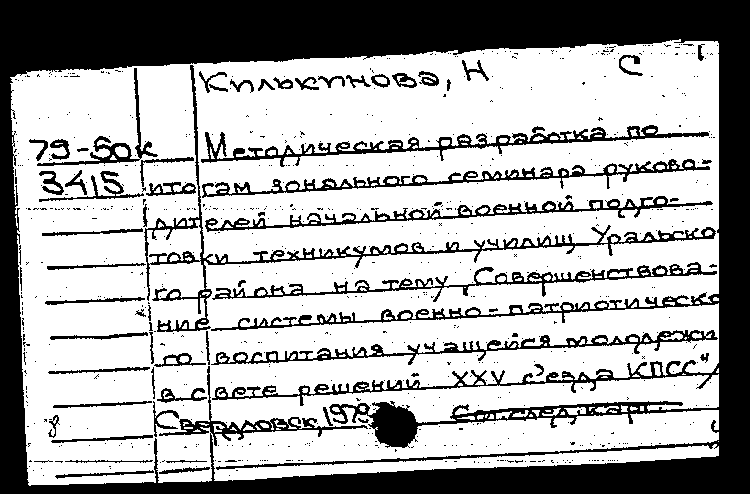 Килькинова, Н С
79-50к Методическая разработка по
3415 итогам зонального семинара руково-
дителей начальной военной подго-
товки техникумов и училищ Уральско
го района на тему „Совершенствова-
ние системы военно-патриотическо
го воспитания учащейся молодежи
в свете решений XXV съезда КПСС"/
Свердловск, 197 См. след. карт.